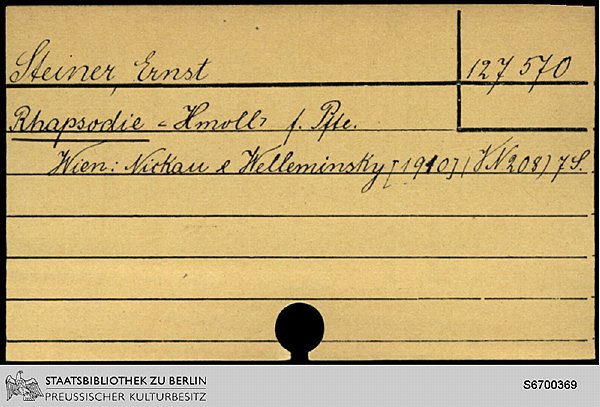 Steiner, Ernst
127 570
Rhapsodie - Hmoll, f. Pfte.
Wien: Nickau & Welleminsky [1910] (VN 208) 7 S.
STAATSBIBLIOTHEK ZU BERLIN
PREUSSISCHER KULTURBESITZ
S6700369